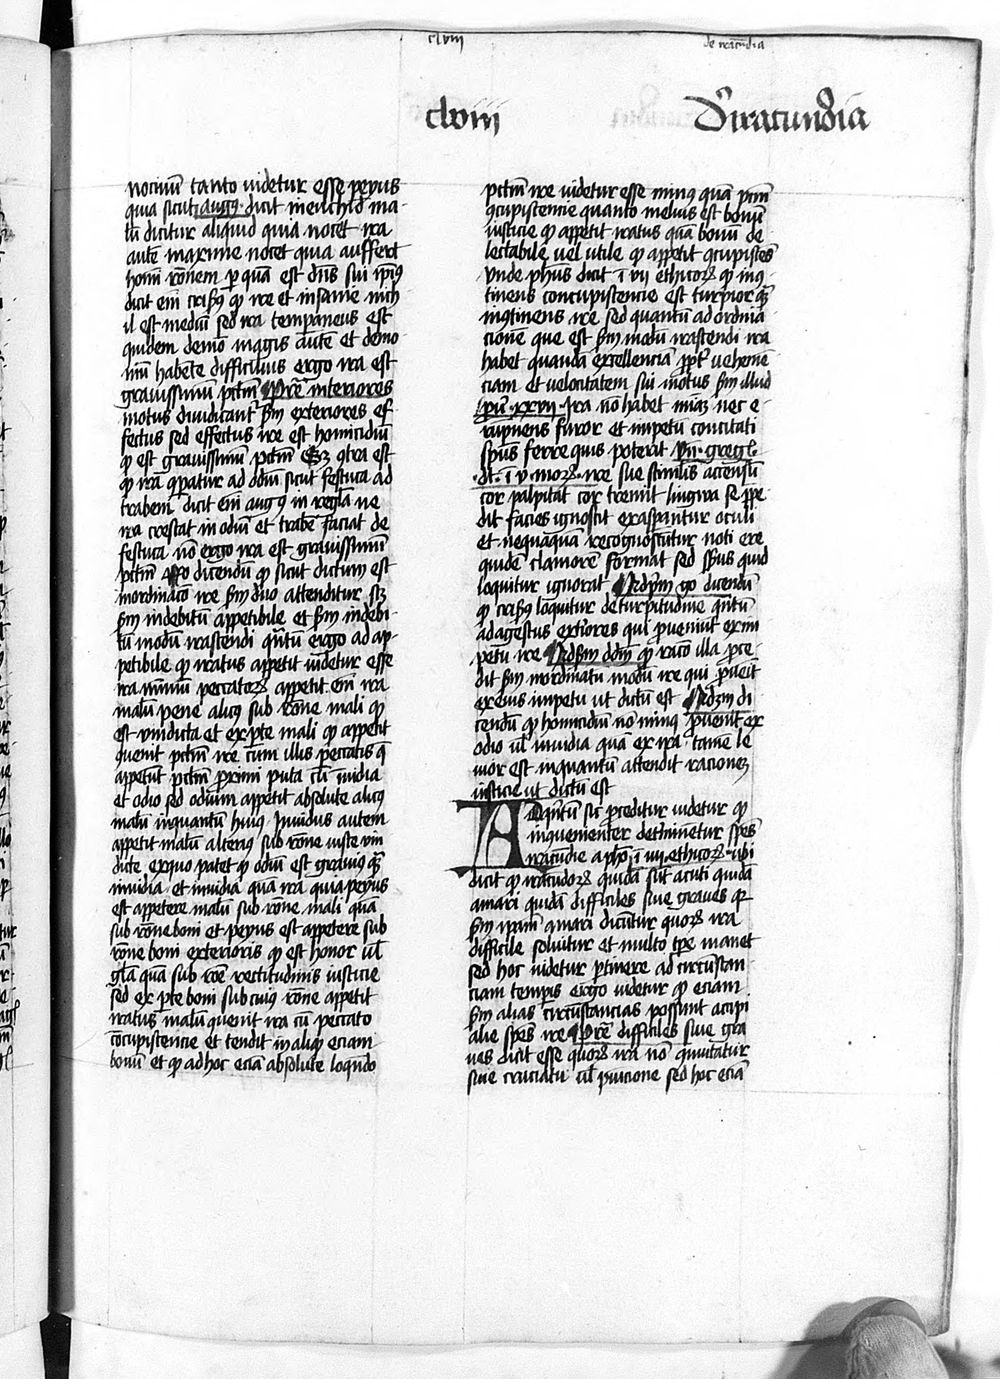 clviii
de iracundia
clviii
De iracundia
nocivu tanto videtur esse peyus
quia sicut augus dicit in enchid ma
lu dicitur aliquid quia nocet ira
aute maxime nocet quia auffert
homi ronem p qua est dns sui ipius
dicit eni crisus qp ire et insanie nich
il est mediu sed ira temporaneus est
quidem demon magis autem et demo
niu habente difficilius ergo ira est
gravissimum pctm Pre interiores
motus diiudicantur sm exteriores ef
fectus sed effectus ire est homicidiu
qp est gravissimu pctm Sz contra est
qp ira conparatur ad odiu sicut festuca ad
trabem dicit eni augus in regla ne
ira crescat in odiu et trabe faciat de
festuca no ergo ira est gravissimu
pctm Rno dicendu qp sicut dictum est
inordinaco ire sm duo attenditur scz
sm indebitu appetibile et sm indebi
tu modu irascendi qntu ergo ad ap
petibile qp iratus appetit videtur esse
ira minimu peccatorum appetit eni ira
malu pene alicus sub rone mali qp
est vindicta et ex pte mali qp appetit
quenit pctm ire cum illis peccatis que
appetunt pctm primi puta cu invidia
et odio sed odium appetit absolute alicus
malu inquantu huius invidus autem
appetit malu alterius sub rone iuste vin
dicte ex quo patet qp odiu est gravius qm
invidia et invidia qua ira quia peyus
est appetere malu sub rone mali qua
sub rone boni et peyus est appetere sub
rone boni exterioris qp est honor vl
gla qua sub roe rectitudinis iusticie
sed ex pte boni sub cuius rone appetit
iratus malu quenit ira cu peccato
concupistencie et tendit in aliqp eciam
bonu et qp ad hoc ecia absolute loqndo
pctm ire videtur esse minus qua pctm
concupistencie quanto melius est bonu
iusticie qp appetit iratus qua bonu de
lectabile vel utile qp appetit concupistes
vnde phus dicit i vii ethicorum qp in con
tinens concupistencie est turpior qm
incontinens ire sed quantu ad ordina
cionem que est sm modu irascendi ira
habet quanda excellencia ppter veheme
ciam et velocitatem sui motus sm illud
pu xxvii Ira no habet miam nec e
rumpens furor et impetu concitati
spus ferre quis poterit Vn gregs
dt i v morum ire sue stimulis accensum
cor palpitat cor tremit lingwa se ppe
dit facies ignoscit exasperantur oculi
et nequaqua recognoscuntur noti ore
quide clamorem format sed sensus quid
loquitur ignorat Ad pm go dicendu
qp crisus loquitur de turpitudine qntu
ad gestus exteriores qui proveniunt ex im
petu ire Ad sm ddm qp raco illa proce
dit sm inordinatu modu ire qui provenit
ex eius impetu ut dictu est Ad 3m di
cendu qp homicidiu no minus provenit ex
odio vl invidia qua ex ira tame le
vior est inquantu attendit racionem
iusticie ut dictu est
Ad quintu sic proceditur videtur qp
inquenienter determinetur spes
iracundie a pho i iiii ethicorum ubi
dicit qp iracundorum quida sut acuti quida
amari quida difficiles sive graves qz
sm ipsum amari dicuntur quorum ira
difficile solvitur et multo tpe manet
sed hoc videtur ptinere ad circumstan
ciam temporis ergo videtur qp eciam
sm alias circumstancias possunt accipi
alie spes ire Pre difficiles sive gra
ves dicit esse quorum ira non comutatur
sine cruciatu vl punicione sed hoc ecia